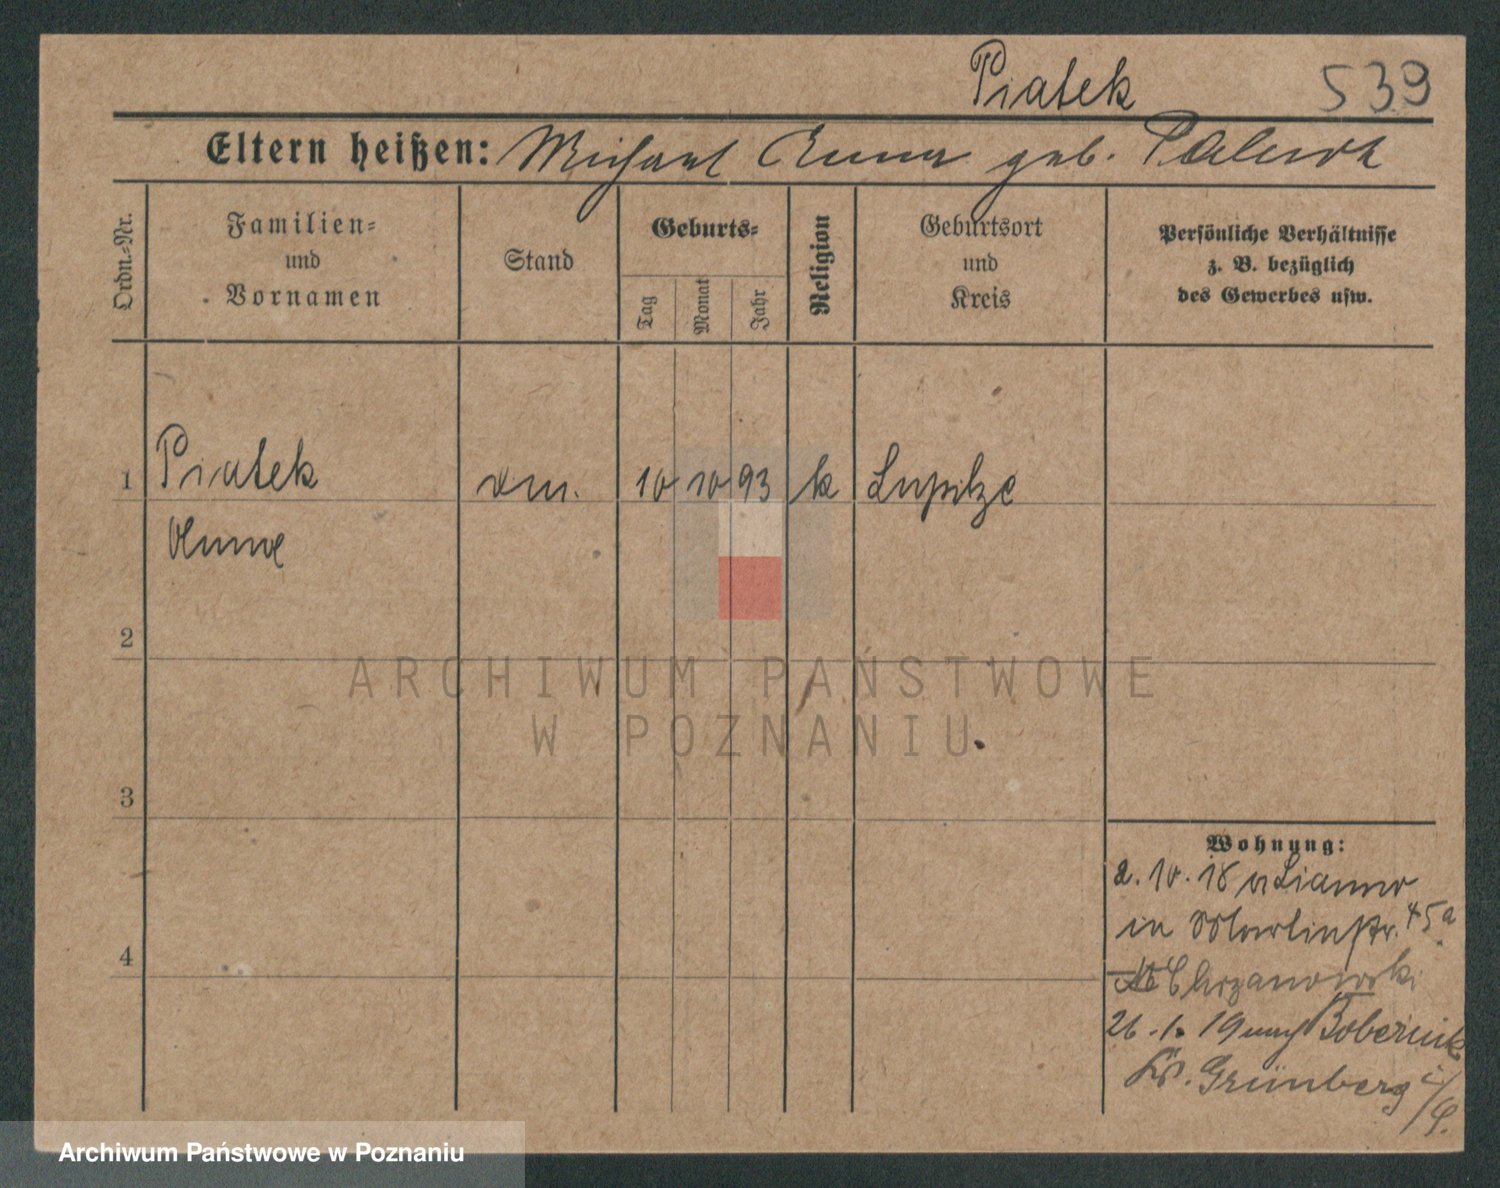 Piatek 539
Eltern heißen: Michael Anna geb. Palurk
Ordn.-Nr.
Familien-
und
Vornamen
Stand
Geburts-
Tag
Monat
Jahr
Religion
Geburtsort
und
Kreis
Persönliche Verhältnisse
z. B. bezüglich
des Gewerbes usw.
1 Piatek 10 10 93 k Lupitze
Anna
2
ARCHIWUM PAŃSTWOWE
W POZNANIU
3
4
Wohnung:
2. 10. 18
in Martinstr. 45a
Chrzanowski
26. 1. 19 nach Bobernik
Kr. Grünberg i/
Archiwum Państwowe w Poznaniu